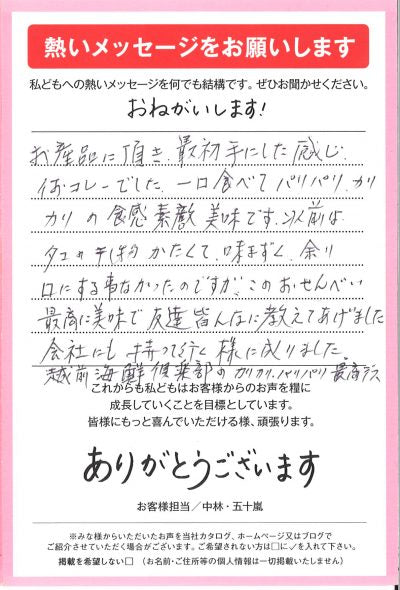 熱いメッセージをお願いします
私どもへの熱いメッセージを何でも結構です。ぜひお聞かせください。
おねがいします!
お産品に頂き、最初手にした感じ、
何コレーでした、一口食べてパリパリ、カリ
カリの食感素敵美味です、以前は
かたくて、味まずく、余り
口にする事なかったのですが、このおせんべい
最高に美味で友達皆んなに教えてあげました
会社にも持って行く様に成りました。
越前海鮮倶楽部のカリカリ、パリパリ最高デス
これからも私どもはお客様からのお声を糧に
成長していくことを目標としています。
皆様にもっと喜んでいただける様、頑張ります。
ありがとうございます
お客様担当/中林・五十嵐
※みな様からいただいたお声を当社カタログ、ホームページ又はブログで
ご紹介させていただく場合がございます。ご希望されない方は□に✓を入れて下さい。
掲載を希望しない□ (お名前・ご住所等の個人情報は一切掲載いたしません)